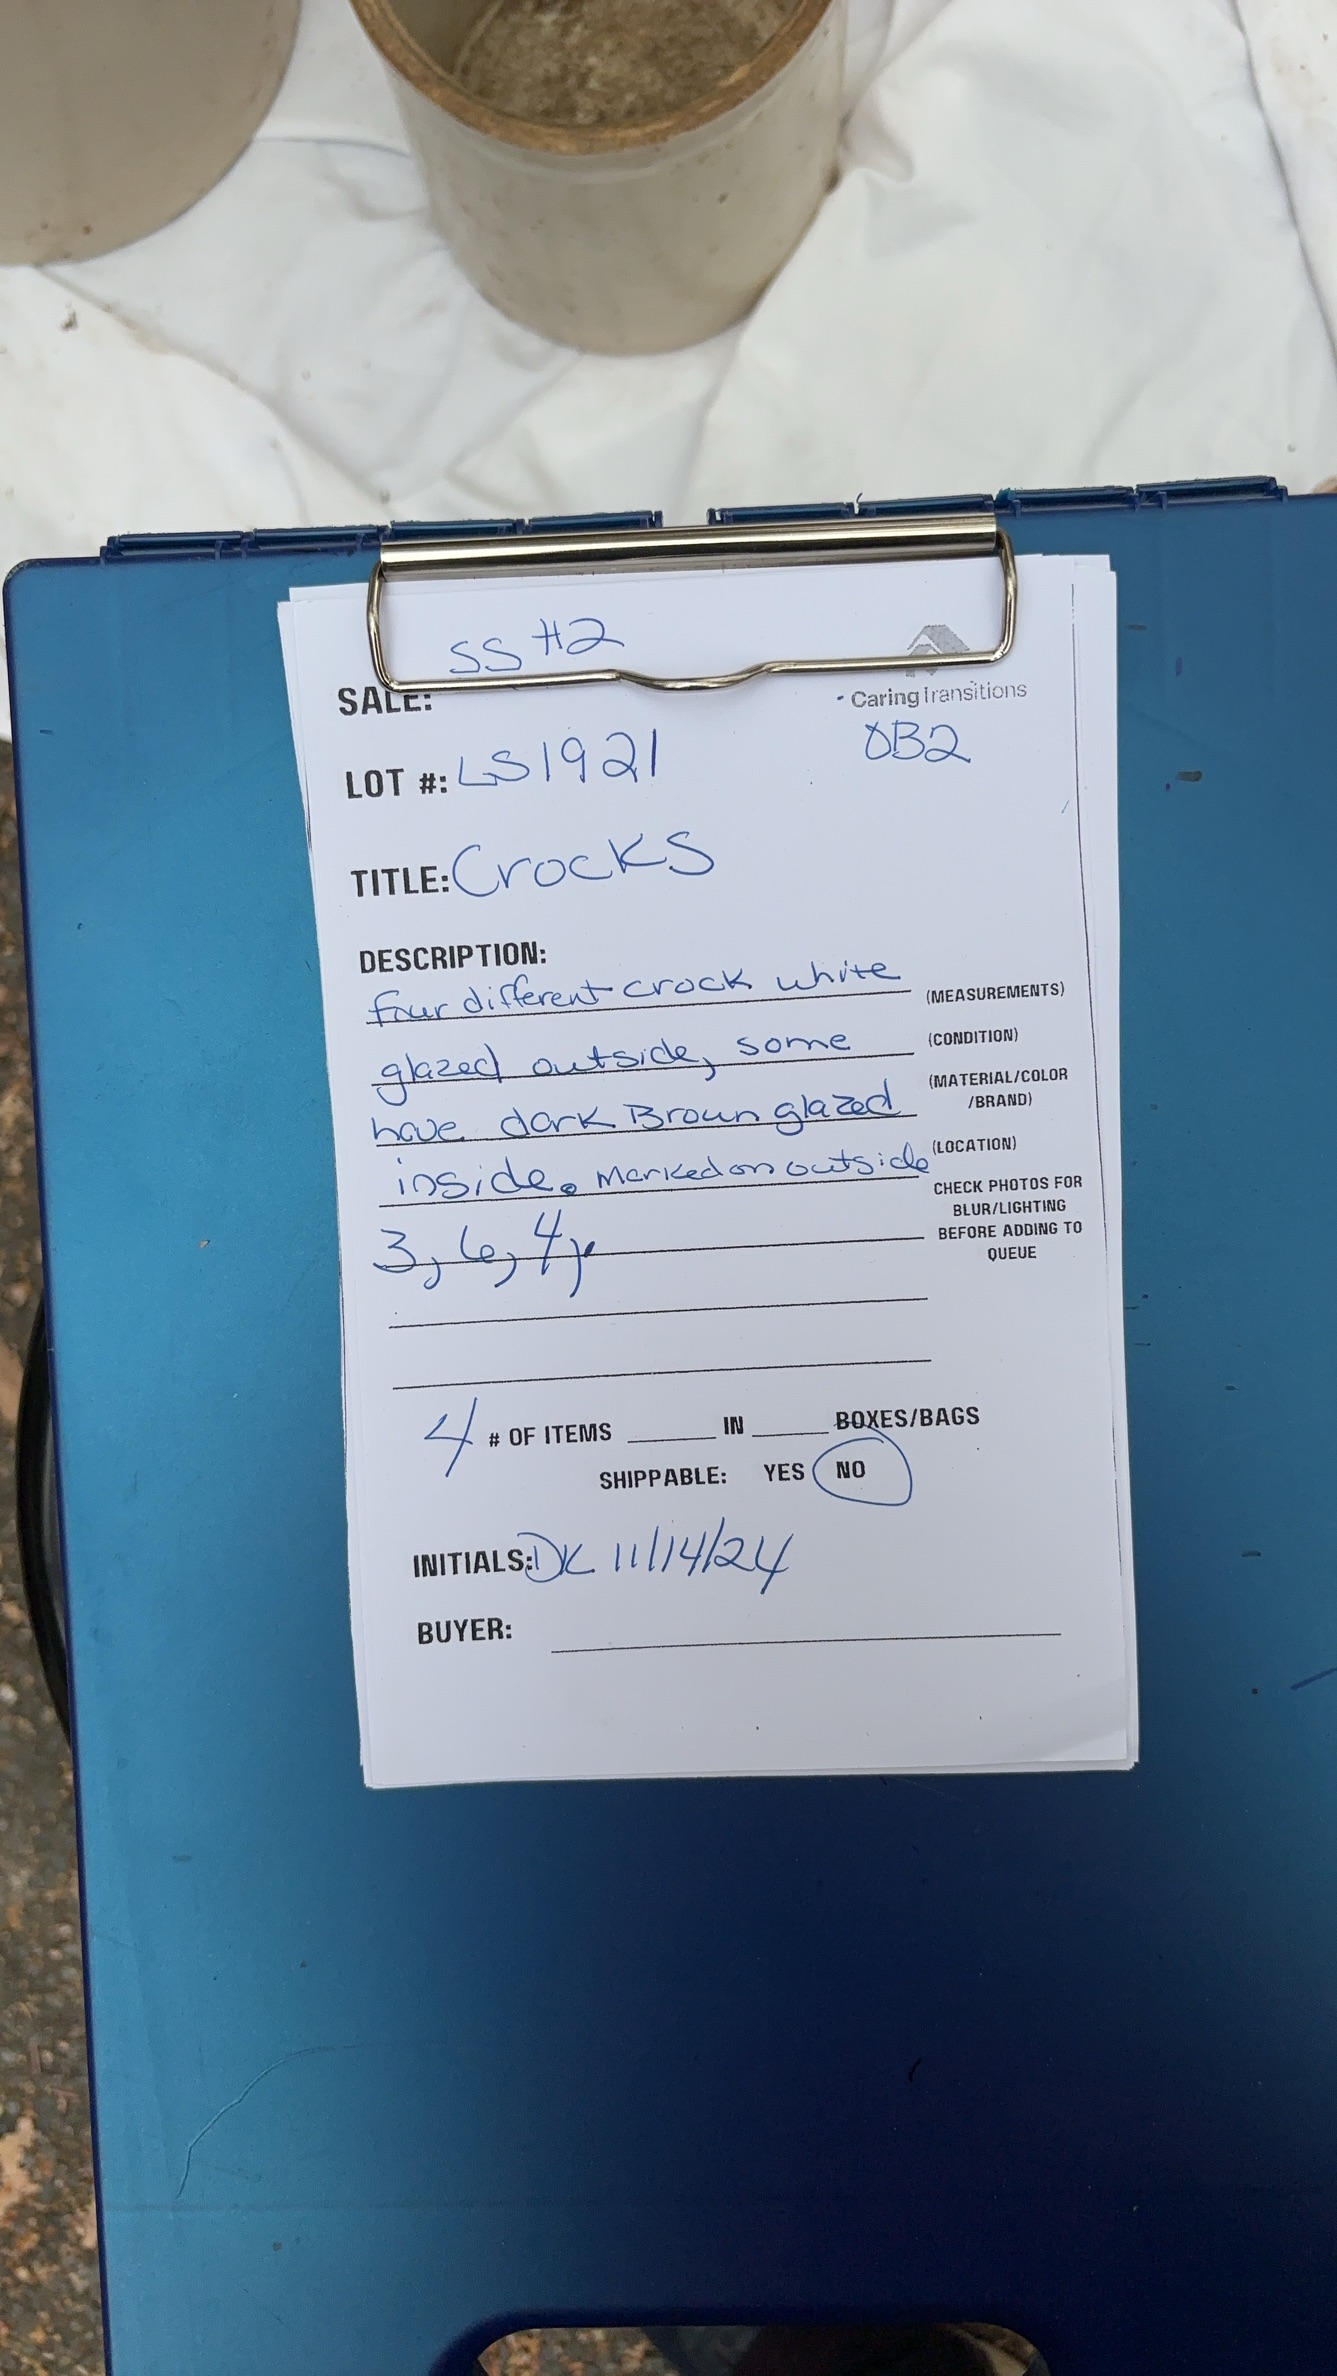 SS #2
SALE:
CaringTransitions
OB2
LOT #: LS1921
TITLE: Crocks
DESCRIPTION:
four different crock white
(MEASUREMENTS)
glazed outside, some
(CONDITION)
have dark Brown glazed
(MATERIAL/COLOR
/BRAND)
inside. Marked on outside
(LOCATION)
3, 6, 4,
CHECK PHOTOS FOR
BLUR/LIGHTING
BEFORE ADDING TO
QUEUE
4 # OF ITEMS ______ IN ______ BOXES/BAGS
SHIPPABLE: YES NO
INITIALS: DK 11/14/24
BUYER: